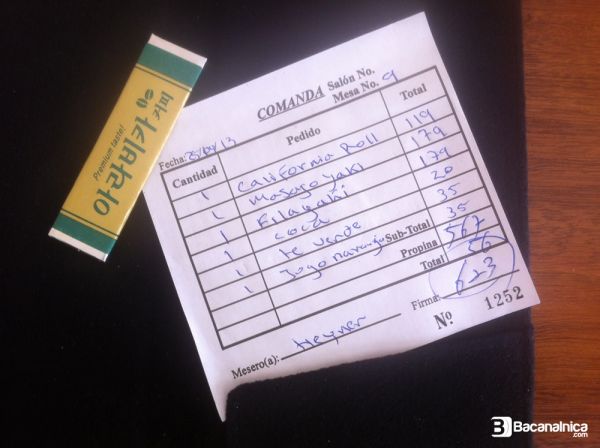 Premium taste!
아라비카 커피
COMANDA
Salón No.
Mesa No. 9
Fecha: 25/04/13
Cantidad Pedido Total
1 California Roll 119
1 Masago yaki 179
1 Filayaki 179
1 coca 20
1 te verde 35
1 Jugo naranja 35
Sub-Total 567
Propina 56
Total 623
Firma:
Mesero(a): Heyner
Nº 1252
B Bacanalnica
.com